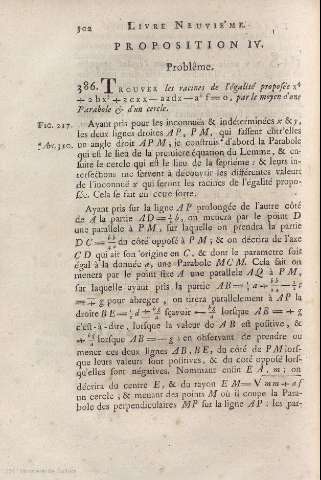 302 LIVRE NEUVIEME.
PROPOSITION IV.
Problême.
386. TROUVER les racines de l'égalité proposée x⁴
+ 2bx³ + 2cxx — 2adx — a³f = 0, par le moyen d'une
Parabole & d'un cercle.
FIG. 217. Ayant pris pour les inconnuës & indéterminées x & y,
les deux lignes droites AP, PM, qui fassent entr'elles
* Art. 310. un angle droit APM, je construis * d'abord la Parabole
qui est le lieu de la premiere équation du Lemme, & ensuite
le cercle qui est le lieu de la septiéme ; & leurs intersections
me servent à découvrir les différentes valeurs
de l'inconnuë x qui seront les racines de l'égalité proposée.
Cela se fait en cette sorte.
Ayant pris sur la ligne AP prolongée de l'autre côté
de A la partie AD = ½b, on menera par le point D
une parallele à PM, sur laquelle on prendra la partie
DC = du côté opposé à PM ; & on décrira de l'axe
CD qui ait son origine en C, & dont le parametre soit
égal à la donnée a, une Parabole MCM. Cela fait on
menera par le point fixe A une parallele AQ à PM,
sur laquelle ayant pris la partie AB =
= + g pour abreger, on tirera parallelement à AP la
droite BE = sçavoir lorsque AB = + g
c'est-à-dire, lorsque la valeur de AB est positive, &
lorsque AB = — g ; en observant de prendre ou
mener ces deux lignes AB, BE, du côté de PM lorsque
leurs valeurs sont positives, & du côté opposé lorsqu'elles
sont négatives. Nommant enfin EA, m ; on
décrira du centre E, & du rayon EM = √mm + af
un cercle ; & menant des points M où il coupe la Parabole
des perpendiculaires MP sur la ligne AP : les par-